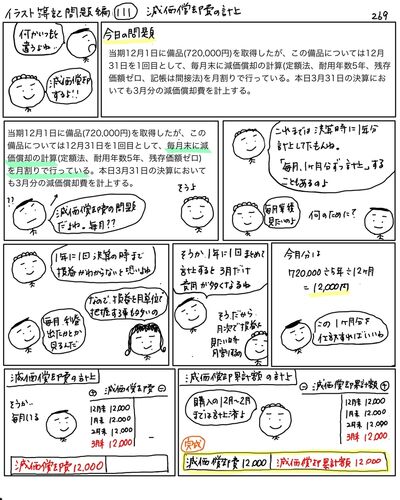 イラスト簿記 問題編 111 減価償却費の計上
269
何かいつもと
違うよね…
減価償却
するよ!!
今日の問題
当期12月1日に備品(720,000円)を取得したが、この備品については12月
31日を1回目として、毎月末に減価償却の計算(定額法、耐用年数5年、残存
価額ゼロ、記帳は間接法)を月割りで行っている。本日3月31日の決算にお
いても3月分の減価償却費を計上する。
当期12月1日に備品(720,000円)を取得したが、この
備品については12月31日を1回目として、毎月末に減
価償却の計算(定額法、耐用年数5年、残存価額ゼロ)
を月割りで行っている。本日3月31日の決算において
も3月分の減価償却費を計上する。
そうよ
??
減価償却の問題
だよね。毎月??
これまでは決算時に1年分
計上してたもんね。
「毎月、1ヶ月分ずつ計上」する
こともあるのよ
何のために?
1年に1回 決算の時まで
損益がわからないと
なので、損益を月単位で
把握する事も多いの
毎月 利益
出たかとか
見るんだ
そうか 1年に1回まとめて
計上すると 3月だけ
費用が多くなるね
そうだから
月次で損益を
見たい時
今月分は
720,000÷5年÷12ヶ月
= 12,000円
この1ヶ月分を
仕訳すればいいね
減価償却費の計上
そうか…
毎月12,000
⊕ 減価償却費 ⊖
12月末 12,000
1月末 12,000
2月末 12,000
3月末 12,000
減価償却費 12,000
減価償却累計額の計上
購入の12月〜2月
までは計上済よ
⊖ 減価償却累計額 ⊕
12月末 12,000
1月末 12,000
2月末 12,000
3月末 12,000
完成
減価償却費 12,000 減価償却累計額 12,000